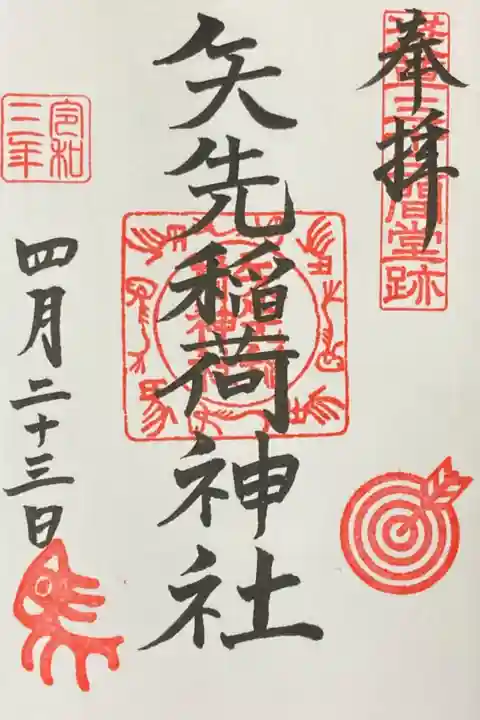 奉拝
三十三間堂跡
矢先稲荷神社
令和
三年
四月二十三日